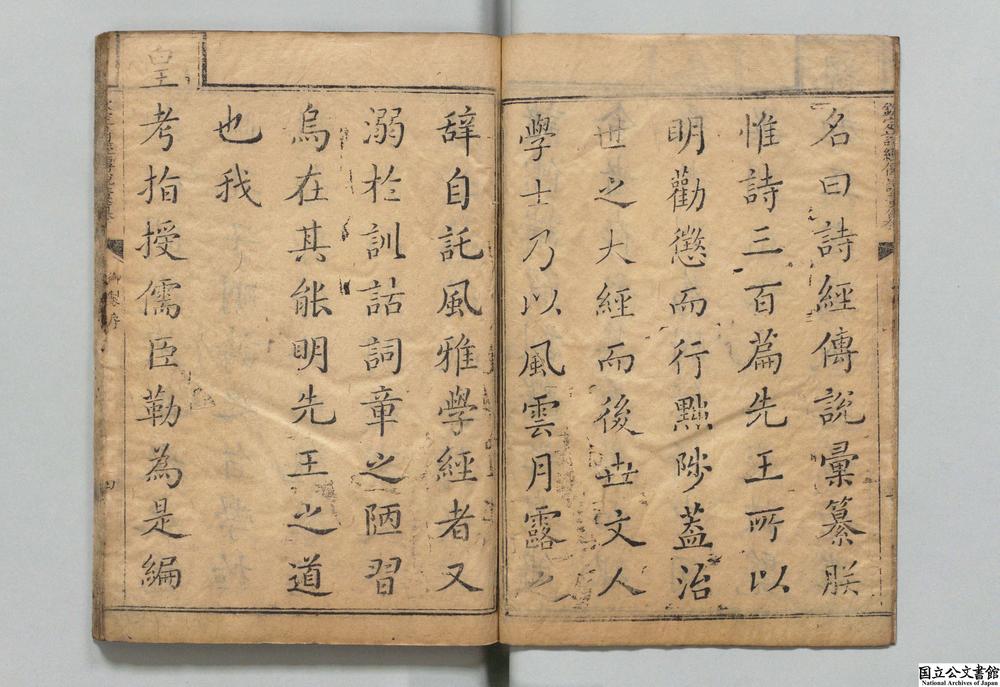 名曰詩經傳說彙纂朕
惟詩三百篇先王所以
明勸懲而行黜陟蓋治
世之大經而後世文人
學士乃以風雲月露之
辭自託風雅學經者又
溺於訓詁詞章之陋習
烏在其能明先王之道
也我
皇
考指授儒臣勒為是編
御製序
四
国立公文書館
National Archives of Japan